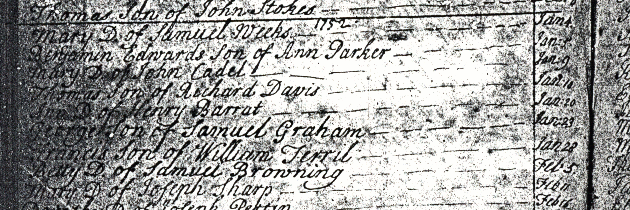 Thomas Son of John Stokes
1752
Mary D of Samuel Weeks Jan 4
Benjamin Edwards Son of Ann Parker Jan 5
Mary D of John Cadel Jan 9
Thomas Son of Richard Davis Jan 10
D of Henry Barrat Jan 20
George Son of Samuel Graham Jan 23
Son of William Terril Jan 28
Mary D of Samuel Browning Feb 5
Mary D of Joseph Sharp Feb
of Joseph Pertin Feb